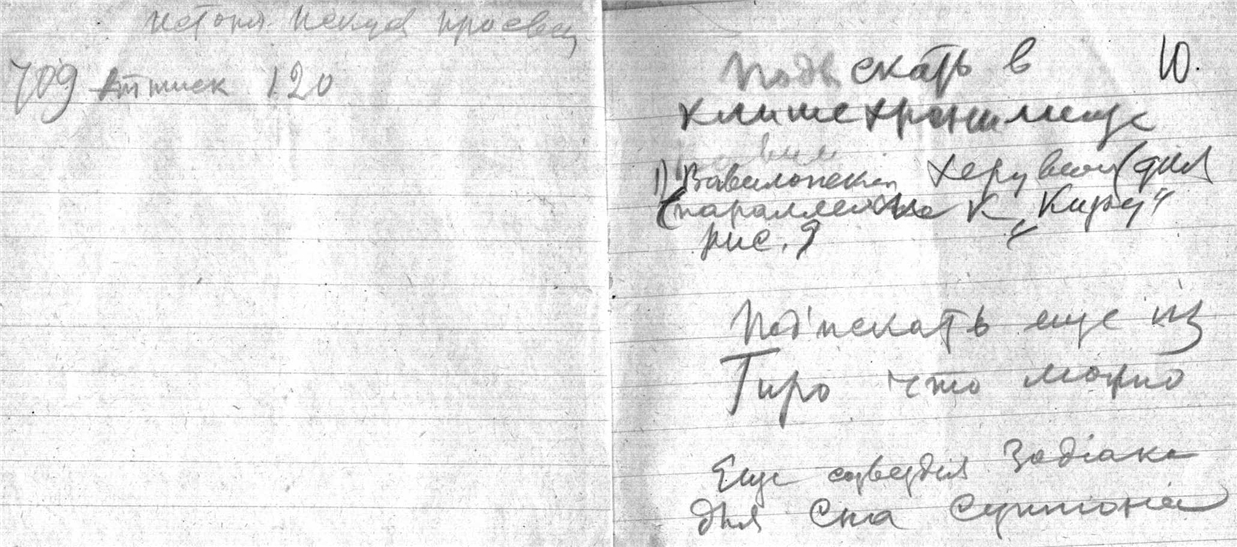 709 Аттиск 120
Подыскать в 10.
клише хранилище
1) Вавилонских Херувим (для
(параллельно к "Киру"
рис. 9
Подискать еще из
Гиро что можно
Еще созвездия Зодіака
для Сна Сципіона